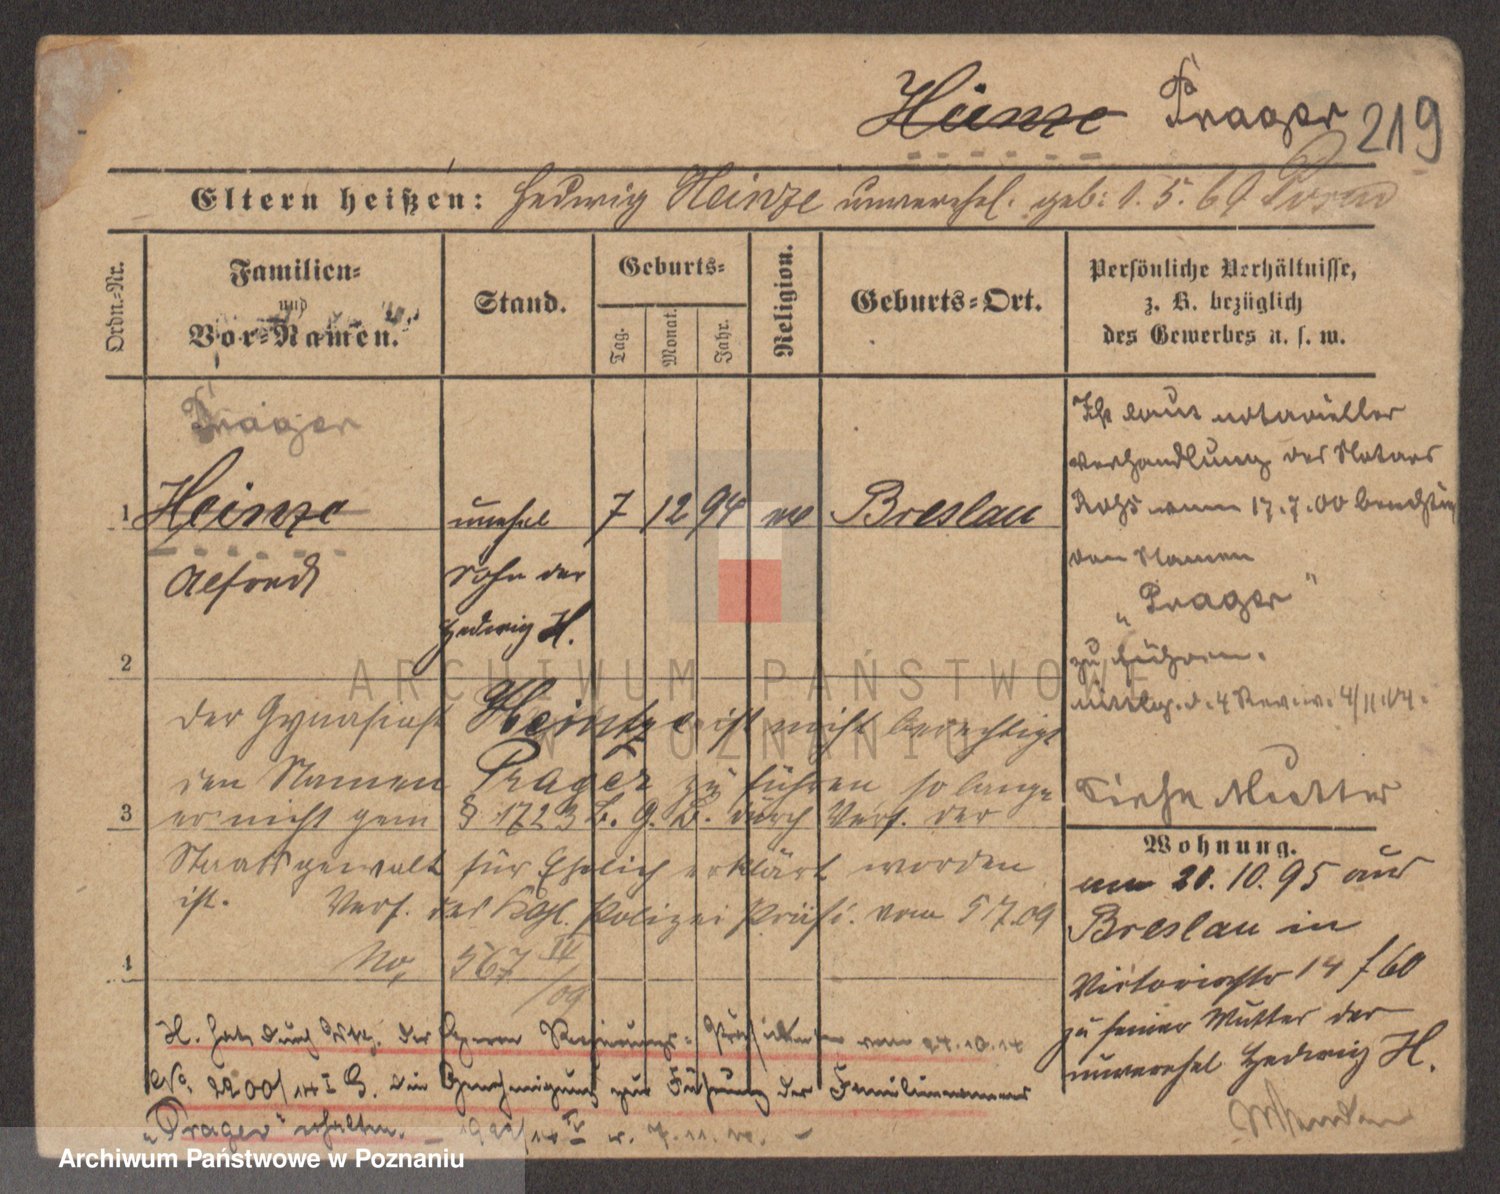 Heinze Prager 219
Eltern heißen: Hedwig Heinze unverehel. geb: 1. 5. 69
Ordn.-Nr.
Familien-
und
Vor-Namen.
Stand.
Geburts-
Tag.
Monat.
Jahr.
Religion.
Geburts-Ort.
Persönliche Verhältnisse,
z. B. bezüglich
des Gewerbes u. s. w.
Prager
1 Heinze unehel 7 12 94 ev Breslau
Alfred Sohn der
Hedwig H.
2
3
4
Ist laut notarieller
Verhandlung des Notars
vom 17.7.00
den Namen
"Prager"
zu führen.
Siehe Mutter
Der Gymnasiast Heintze ist nicht berechtigt
den Namen Prager zu führen so lange
er nicht gem § 1723 B. G. B. durch Verf. der
Staatsgewalt für Ehelich erklärt worden
ist. Verf. des Kgl. Polizei Präsi. vom 5 7.09
No, 567 IV/09
H. hat durch der Herrn Regierungs-Präsidenten vom 24.10.14
No. 2200/14 I G. die Genehmigung zur Führung des Familiennamens
"Prager" erhalten.
Wohnung.
am 21.10.95 aus
Breslau in
Victoriastr 14 f/60
zu seiner Mutter der
unverehel Hedwig H.
ARCHIWUM PAŃSTWOWE
W POZNANIU
Archiwum Państwowe w Poznaniu